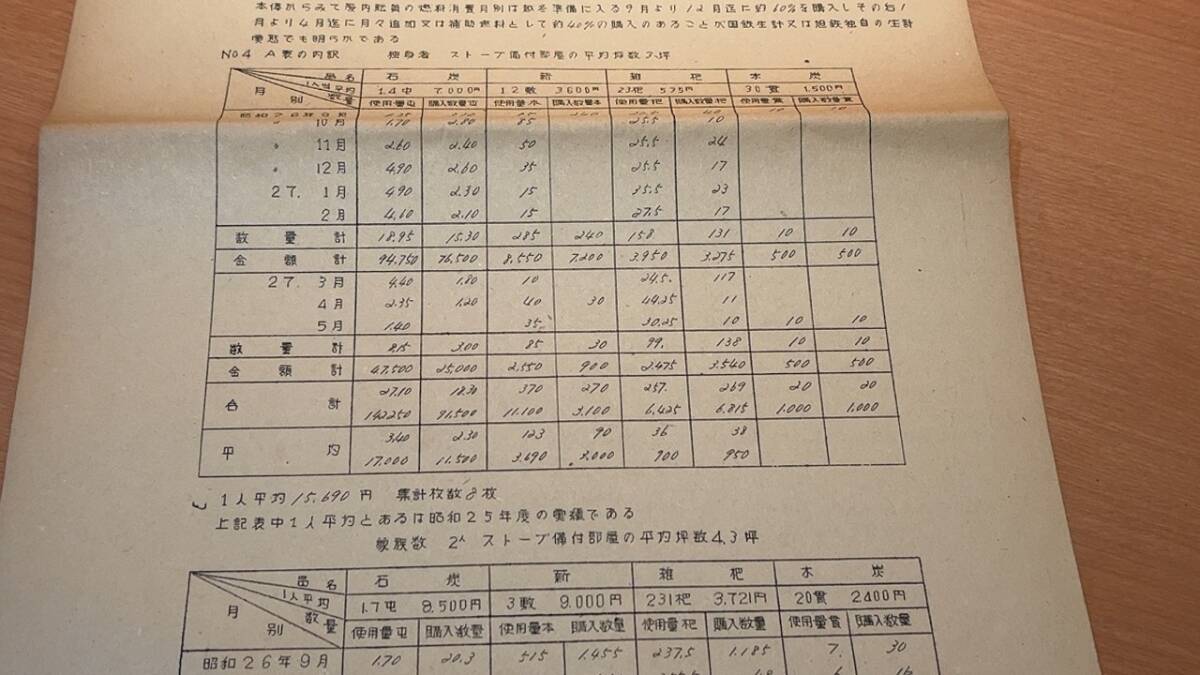 月より4月迄に月々追加又は補助燃料として約40%の購入のあることが国鉄生計又は旭鉄独自の生計
実態でも明らかである
No4 A表の内訳 独身者 ストーブ備付部屋の平均坪数 坪
品名 石炭 薪 雑把 木炭
1人当平均 1.4屯 7,000円 12敷 3600円 23把 575円 30貫 1,500円
月別 数量 使用量屯 購入数量屯 使用量本 購入数量本 使用量把 購入数量把 使用量貫 購入数量貫
昭和26年9月
〃 10月 1.70 2.80 85 25.5 10
〃 11月 2.60 2.40 50 25.5 24
〃 12月 4.90 2.60 35 25.5 17
27. 1月 4.90 2.30 15 35.5 23
2月 4.60 2.10 15 27.5 17
数量計 18.95 15.30 285 240 158 131 10 10
金額計 94,750 76,500 8,550 7,200 3,950 3,275 500 500
27. 3月 4.40 1.80 10 24.5 117
4月 2.35 1.20 40 30 44.25 11
5月 1.40 35 30.25 10 10 10
数量計 8.15 3.00 85 30 99. 138 10 10
金額計 47,500 25,000 2,550 900 2,475 3,540 500 500
合計 27.10 18.30 370 270 257. 269 20 20
142,250 91,500 11,100 8,100 6,425 6,815 1,000 1,000
平均 3.40 2.30 123 90 36 38
17,000 11,500 3,690 3,000 900 950
1人平均15,690円 集計枚数8枚
上記表中1人平均とあるは昭和25年度の実績である
家族数 2人 ストーブ備付部屋の平均坪数4.3坪
品名 石炭 薪 雑把 木炭
1人平均 1.7屯 8,500円 3敷 9,000円 231把 3,721円 20貫 2,400円
月別 数量 使用量屯 購入数量 使用量本 購入数量 使用量把 購入数量 使用量貫 購入数量
昭和26年9月 1.70 20.3 515 1,455 237.5 1,185 7. 30